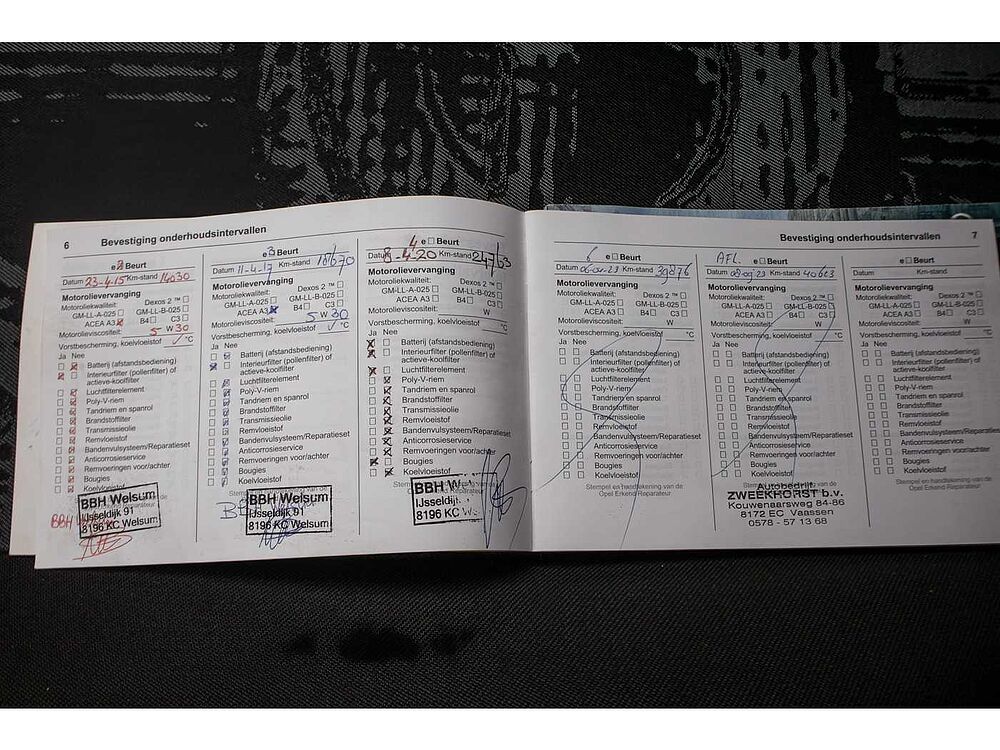 6 Bevestiging onderhoudsintervallen
e 2 Beurt
Datum 23-4-15 Km-stand 14030
Motorolievervanging
Motoroliekwaliteit: Dexos 2 ™
GM-LL-A-025 GM-LL-B-025
ACEA A3 B4 C3
Motorolieviscositeit: 5 W 30
Vorstbescherming, koelvloeistof °C
Ja Nee
Batterij (afstandsbediening)
Interieurfilter (pollenfilter) of
actieve-koolfilter
Luchtfilterelement
Poly-V-riem
Tandriem en spanrol
Brandstoffilter
Transmissieolie
Remvloeistof
Bandenvulsysteem/Reparatieset
Anticorrosieservice
Remvoeringen voor/achter
Bougies
Koelvloeistof
BBH Welsum
IJsseldijk 91
8196 KC Welsum
e 3 Beurt
Datum 11-4-17 Km-stand
Motorolievervanging
Motoroliekwaliteit: Dexos 2 ™
GM-LL-A-025 GM-LL-B-025
ACEA A3 B4 C3
Motorolieviscositeit: 5 W 30
Vorstbescherming, koelvloeistof °C
Ja Nee
Batterij (afstandsbediening)
Interieurfilter (pollenfilter) of
actieve-koolfilter
Luchtfilterelement
Poly-V-riem
Tandriem en spanrol
Brandstoffilter
Transmissieolie
Remvloeistof
Bandenvulsysteem/Reparatieset
Anticorrosieservice
Remvoeringen voor/achter
Bougies
Koelvloeistof
BBH Welsum
IJsseldijk 91
8196 KC Welsum
4 e Beurt
Datum 8-4-20 Km-stand 24763
Motorolievervanging
Motoroliekwaliteit: Dexos 2 ™
GM-LL-A-025 GM-LL-B-025
ACEA A3 B4 C3
Motorolieviscositeit: W
Vorstbescherming, koelvloeistof °C
Ja Nee
Batterij (afstandsbediening)
Interieurfilter (pollenfilter) of
actieve-koolfilter
Luchtfilterelement
Poly-V-riem
Tandriem en spanrol
Brandstoffilter
Transmissieolie
Remvloeistof
Bandenvulsysteem/Reparatieset
Anticorrosieservice
Remvoeringen voor/achter
Bougies
Koelvloeistof
BBH
IJsseldij
8196 KC
Bevestiging onderhoudsintervallen 7
6 e Beurt
Datum Km-stand 39876
Motorolievervanging
Motoroliekwaliteit: Dexos 2 ™
GM-LL-A-025 GM-LL-B-025
ACEA A3 B4 C3
Motorolieviscositeit: W
Vorstbescherming, koelvloeistof °C
Ja Nee
Batterij (afstandsbediening)
Interieurfilter (pollenfilter) of
actieve-koolfilter
Luchtfilterelement
Poly-V-riem
Tandriem en spanrol
Brandstoffilter
Transmissieolie
Remvloeistof
Bandenvulsysteem/Reparatieset
Anticorrosieservice
Remvoeringen voor/achter
Bougies
Koelvloeistof
Stempel en handtekening van de
Opel Erkend Reparateur
AFL. e Beurt
Datum Km-stand 40603
Motorolievervanging
Motoroliekwaliteit: Dexos 2 ™
GM-LL-A-025 GM-LL-B-025
ACEA A3 B4 C3
Motorolieviscositeit: W
Vorstbescherming, koelvloeistof °C
Ja Nee
Batterij (afstandsbediening)
Interieurfilter (pollenfilter) of
actieve-koolfilter
Luchtfilterelement
Poly-V-riem
Tandriem en spanrol
Brandstoffilter
Transmissieolie
Remvloeistof
Bandenvulsysteem/Reparatieset
Anticorrosieservice
Remvoeringen voor/achter
Bougies
Koelvloeistof
Autobedrijf
ZWEEKHORST b.v.
Kouwenaarsweg 84-86
8172 EC Vaassen
0578 - 57 13 68
e Beurt
Datum Km-stand
Motorolievervanging
Motoroliekwaliteit: Dexos 2 ™
GM-LL-A-025 GM-LL-B-025
ACEA A3 B4 C3
Motorolieviscositeit: W
Vorstbescherming, koelvloeistof °C
Ja Nee
Batterij (afstandsbediening)
Interieurfilter (pollenfilter) of
actieve-koolfilter
Luchtfilterelement
Poly-V-riem
Tandriem en spanrol
Brandstoffilter
Transmissieolie
Remvloeistof
Bandenvulsysteem/Reparatieset
Anticorrosieservice
Remvoeringen voor/achter
Bougies
Koelvloeistof
Stempel en handtekening van de
Opel Erkend Reparateur